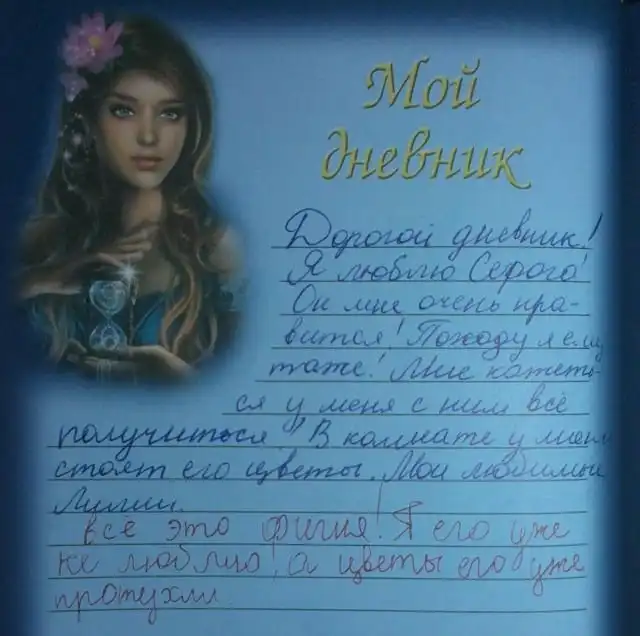 Мой
дневник
Дорогой дневник!
Я люблю Серого!
Он мне очень нра-
вится! Походу я ему
тоже! Мне кажеть-
ся у меня с ним всё
получиться! В комнате у меня
стоят его цветы. Мои любимые
Лилии.
Всё это фигня! Я его уже
не люблю, а цветы его уже
протухли